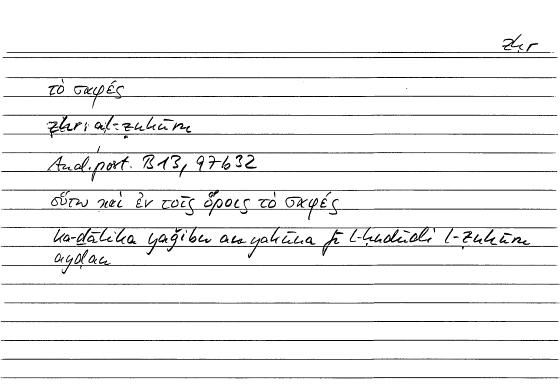 ẓhr
τὸ σαφές
ẓhr i al-ẓuhūru
Anal. post. B 13, 97b32
οὕτω καὶ ἐν τοῖς ὅροις τὸ σαφές
ka-ḏālika yaǧibu an yakūna fī l-ḥudūdi l-ẓuhūru
ayḍan